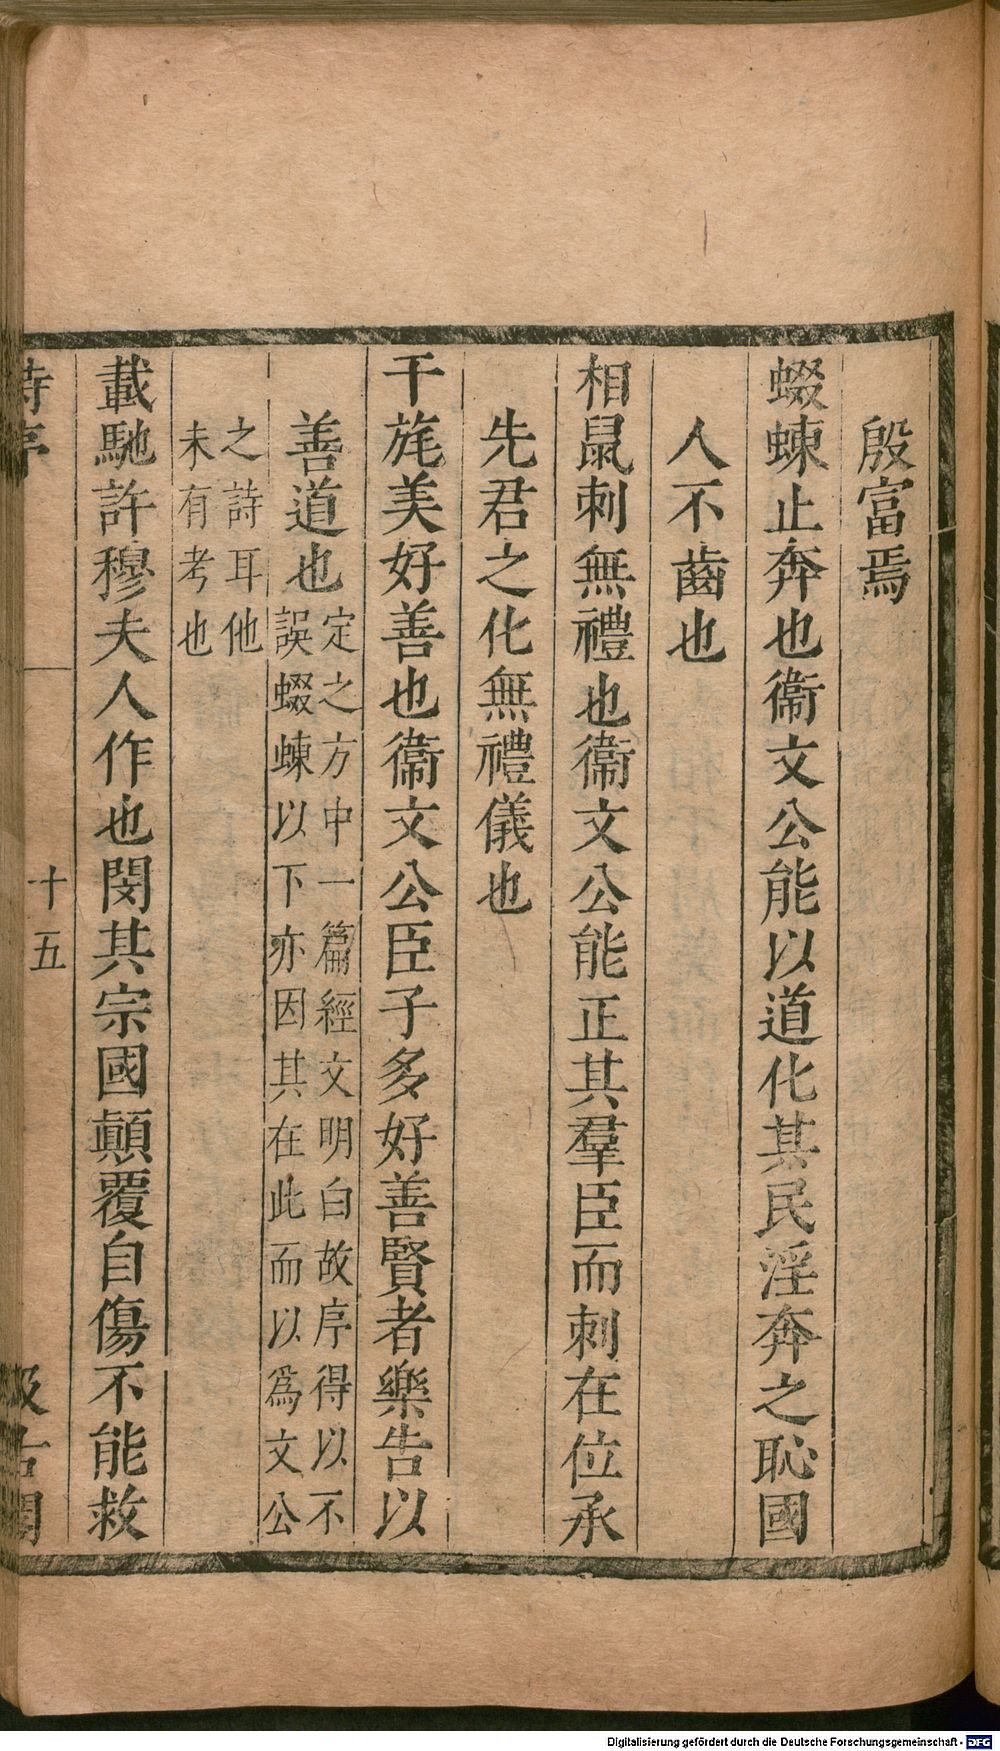 殷富焉
蝃蝀止奔也衞文公能以道化其民淫奔之恥國
人不齒也
相鼠刺無禮也衞文公能正其羣臣而刺在位承
先君之化無禮儀也
干旄美好善也衞文公臣子多好善賢者樂告以
善道也
定之方中一篇經文明白故序得以不
誤蝃蝀以下亦因其在此而以爲文公
之詩耳他
未有考也
載馳許穆夫人作也閔其宗國顚覆自傷不能救
詩序
十五
汲古閣
Digitalisierung gefördert durch die Deutsche Forschungsgemeinschaft - DFG